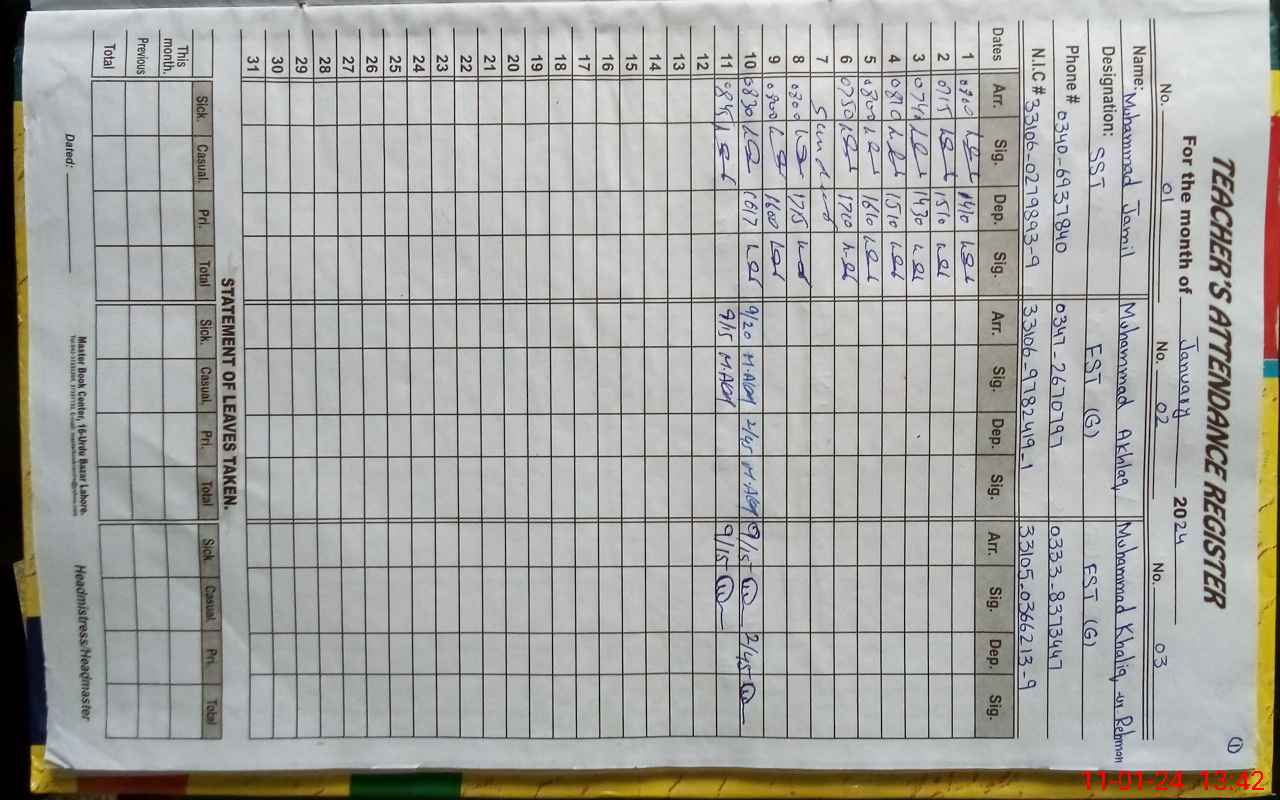 ①
TEACHER'S ATTENDANCE REGISTER
For the month of January 2024
No. 01 No. 02 No. 03
Name: Muhammad Jamil Muhammad Akhlaq Muhammad Khaliq ur Rehman
Designation: SST EST (G) EST (G)
Phone # 0340-6937840 0347-2670797 0333-8373447
N.I.C # 33106-0279893-9 33106-9782419-1 33105-0366213-9
Dates Arr. Sig. Dep. Sig. Arr. Sig. Dep. Sig. Arr. Sig. Dep. Sig.
1 0800 1410
2 0715 1510
3 0740 1430
4 0810 1510
5 0800 1610
6 0750 1700
7 Sunday
8 0800 1715
9 0800 1600
10 0830 1617 9/20 M.Akh 2/45 M.Akh 9/15 2/45
11 0845 9/15 M.Akh 9/15
12
13
14
15
16
17
18
19
20
21
22
23
24
25
26
27
28
29
30
31
STATEMENT OF LEAVES TAKEN.
Sick. Casual. Pri. Total Sick. Casual. Pri. Total Sick. Casual. Pri. Total
This month.
Previous
Total
Dated: Master Book Center, 16-Urdu Bazar Lahore. Headmistress/Headmaster
11-01-24 13:42